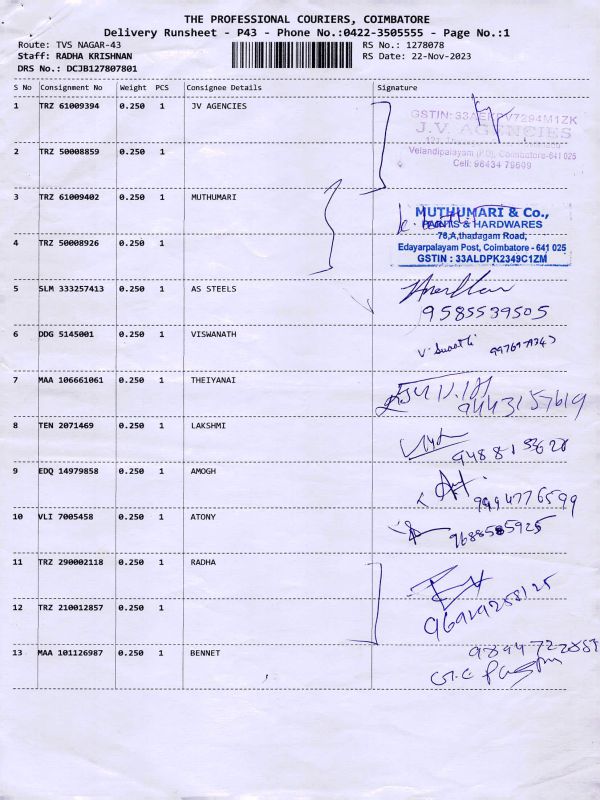 THE PROFESSIONAL COURIERS, COIMBATORE
Delivery Runsheet - P43 - Phone No.:0422-3505555 - Page No.:1
Route: TVS NAGAR-43 RS No.: 1278078
Staff: RADHA KRISHNAN RS Date: 22-Nov-2023
DRS No.: DCJB127807801
S No Consignment No Weight PCS Consignee Details Signature
1 TRZ 61009394 0.250 1 JV AGENCIES
J.V. AGENCIES
Velandipalayam (P.O), Coimbatore-641 025
Cell: 98434 79609
2 TRZ 50008859 0.250 1
3 TRZ 61009402 0.250 1 MUTHUMARI
MUTHUMARI & Co.,
PAINTS & HARDWARES
76,A,thadagam Road,
Edayarpalayam Post, Coimbatore - 641 025
GSTIN : 33ALDPK2349C1ZM
4 TRZ 50008926 0.250 1
5 SLM 333257413 0.250 1 AS STEELS
9585539505
6 DDG 5145001 0.250 1 VISWANATH
7 MAA 106661061 0.250 1 THEIYANAI
9443157619
8 TEN 2071469 0.250 1 LAKSHMI
9 EDQ 14979858 0.250 1 AMOGH
9994776599
10 VLI 7005458 0.250 1 ATONY
9688585925
11 TRZ 290002118 0.250 1 RADHA
12 TRZ 210012857 0.250 1
13 MAA 101126987 0.250 1 BENNET